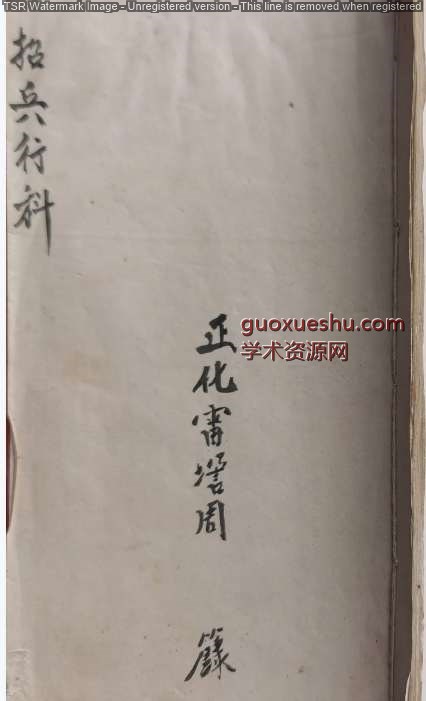 TSR Watermark Image - Unregistered version - This line is removed when registered
招兵行科
guoxueshu.com
学术资源网
正化雷壇周
籙